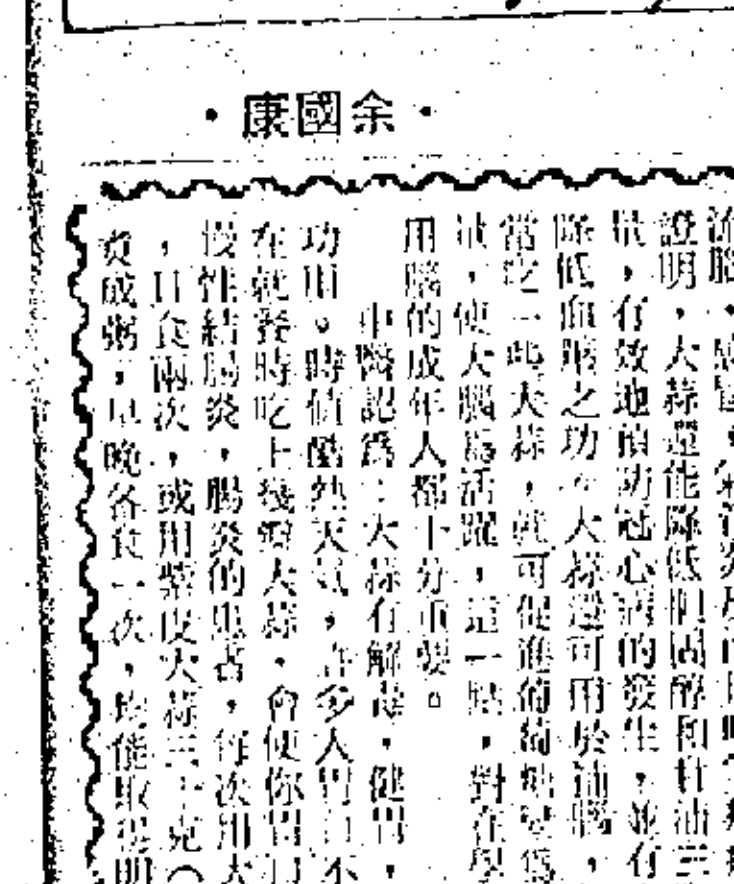 ·余國康·
證明，大蒜還能降低胆固醇和甘油三
量，有效地預防冠心病的發生，並有
降低血糖之功。大蒜還可用於補腦，
常吃一些大蒜，就可促進葡萄糖
使大腦為活躍，這一點，對在學
用腦的成年人都十分重要。
中醫認為：大蒜有解毒，健胃，
功用。時值酷熱天氣，許多人胃口不
在就餐時吃上幾瓣大蒜，會使你胃口
慢性結腸炎，腸炎的患者，每次用大
，日食兩次，或用紫皮大蒜三十克（
煮成粥，早晚各食一次，均能取得明